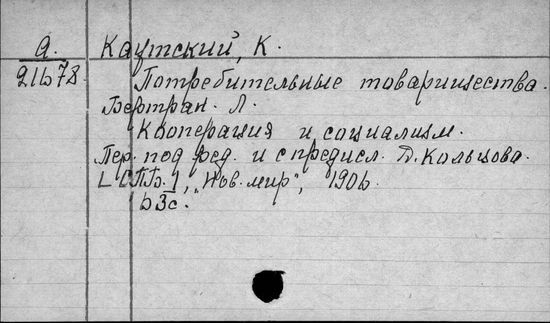 А. Каутский, К.
21678 Потребительные товарищества.
Бертран. Л.
Кооперация и социализм.
Пер. под ред. и с предисл. Д. Кольцова.
[СПБ.], "Нов. мир", 1906.
63с.